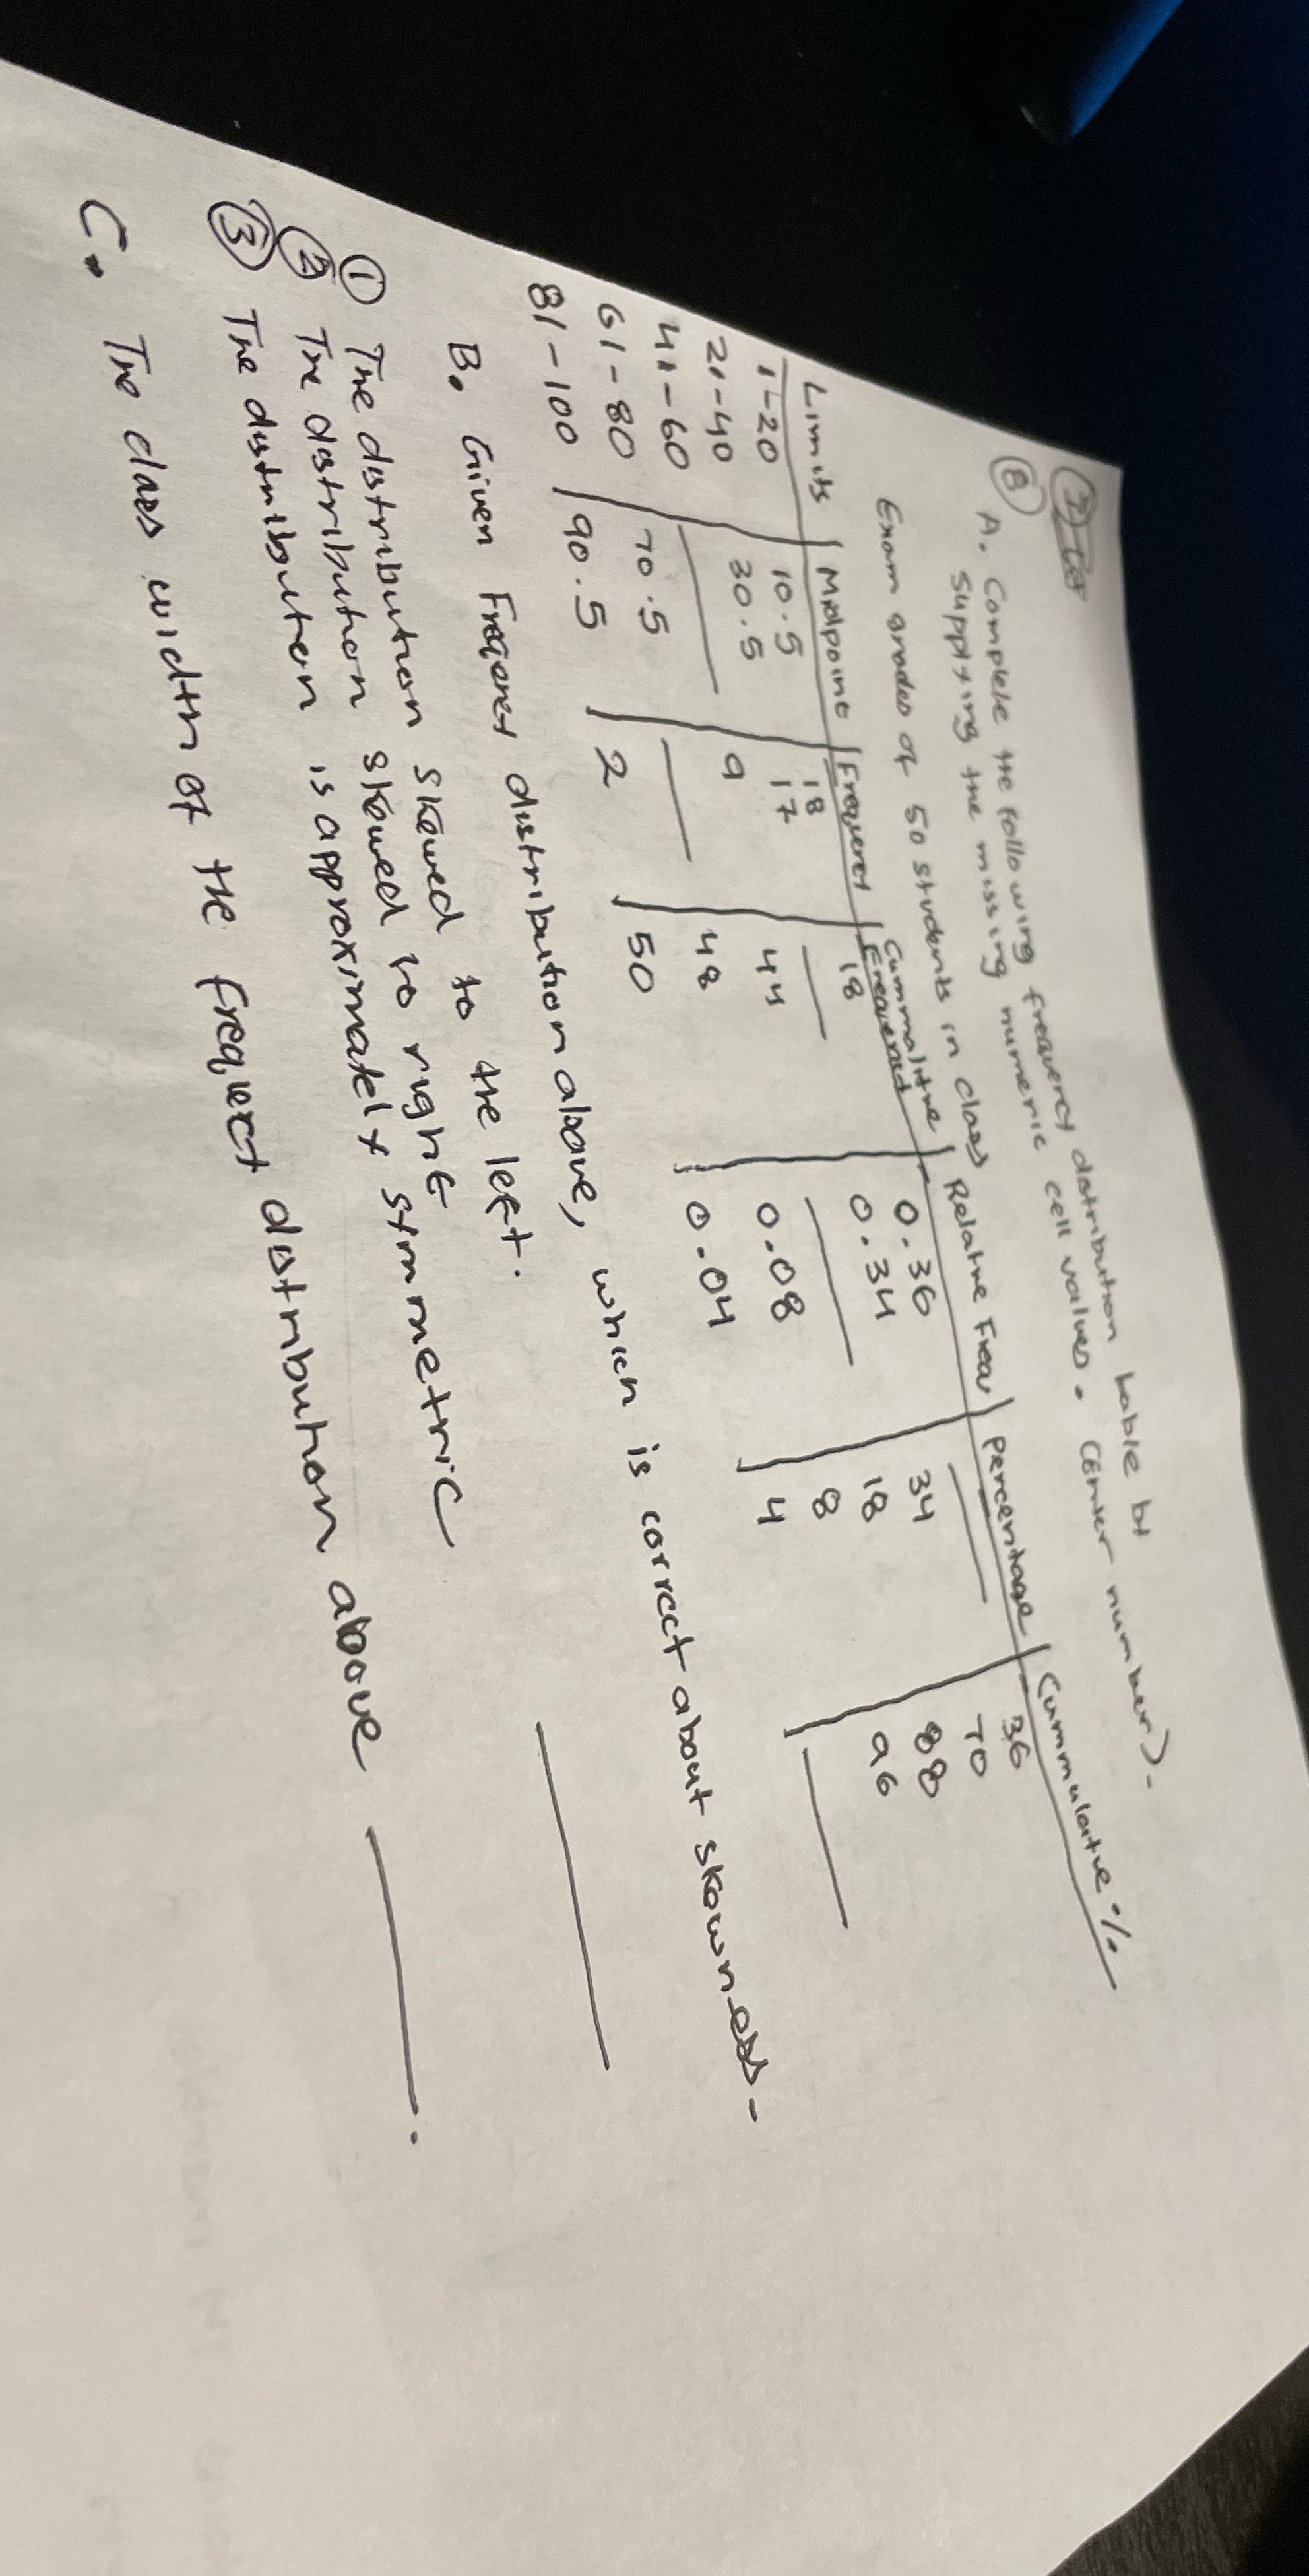 8
A. Complete the following frequency distribution table by
supplying the missing numeric cell values. (Enter number).
Exam grades of 50 students in class
Limits | Midpoint | Frequency | Cummalitive Frequency | Relative Freq | Percentage | Cummulative %
1-20 10.5 18 18 0.36 ____ 36
21-40 30.5 17 ____ 0.34 34 70
41-60 ____ 9 44 ____ 18 88
61-80 70.5 ____ 48 0.08 8 96
81-100 90.5 2 50 0.04 4 ____
B. Given Freqency distribution above, which is correct about skewness-
① The distribution skewed to the left.
② The distribution skewed to right
③ The distribution is approximately symmetric
C. The class width of the frequency distribution above ____.